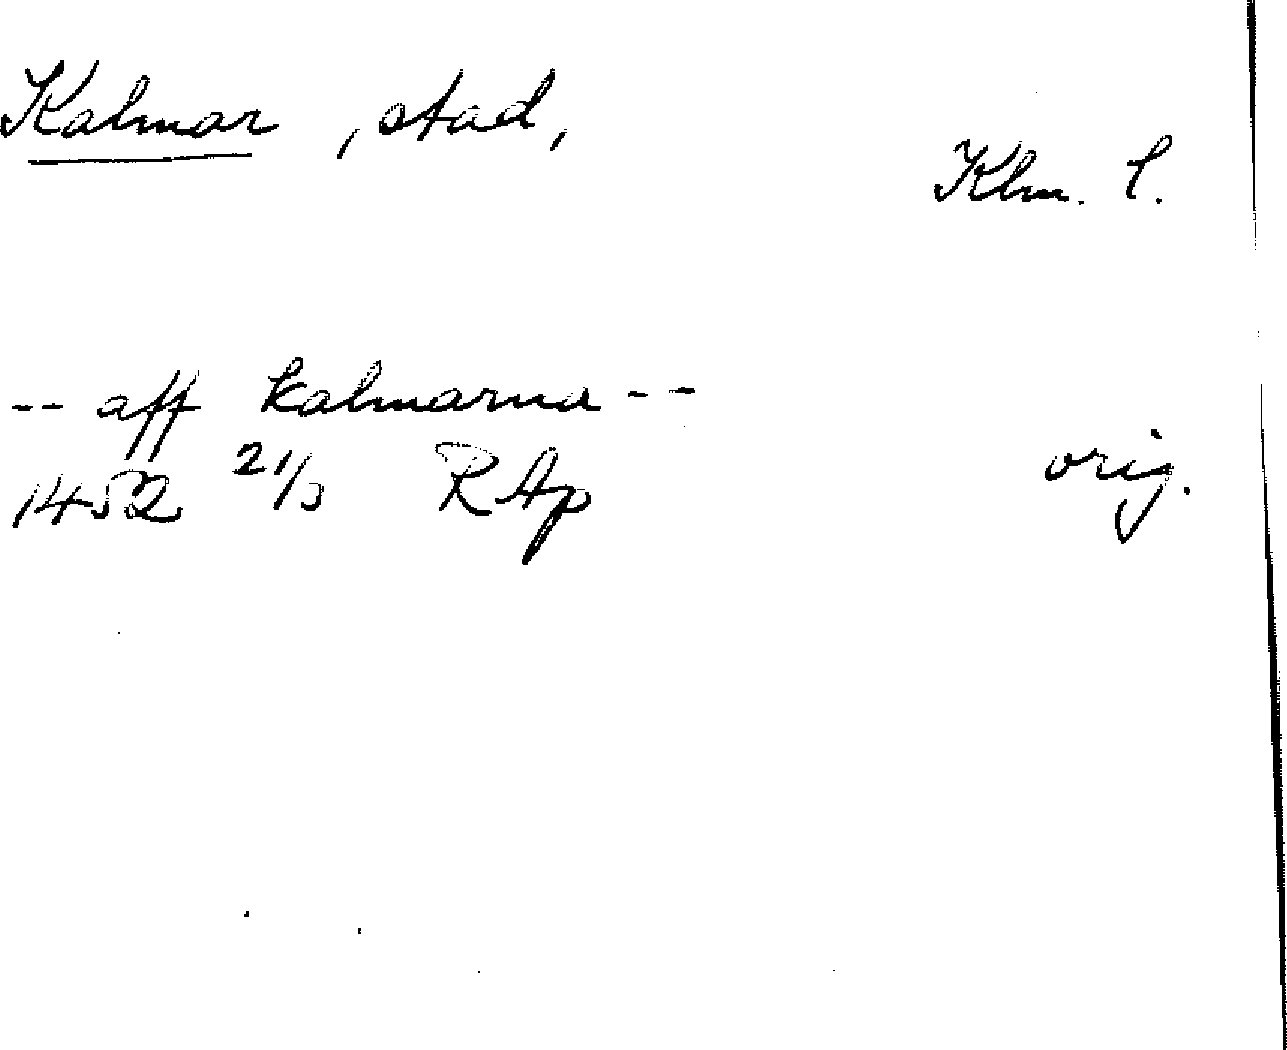 Kalmar, stad,
Klm. l.
-- aff kalmarna --
1452 21/3 RAp orig.